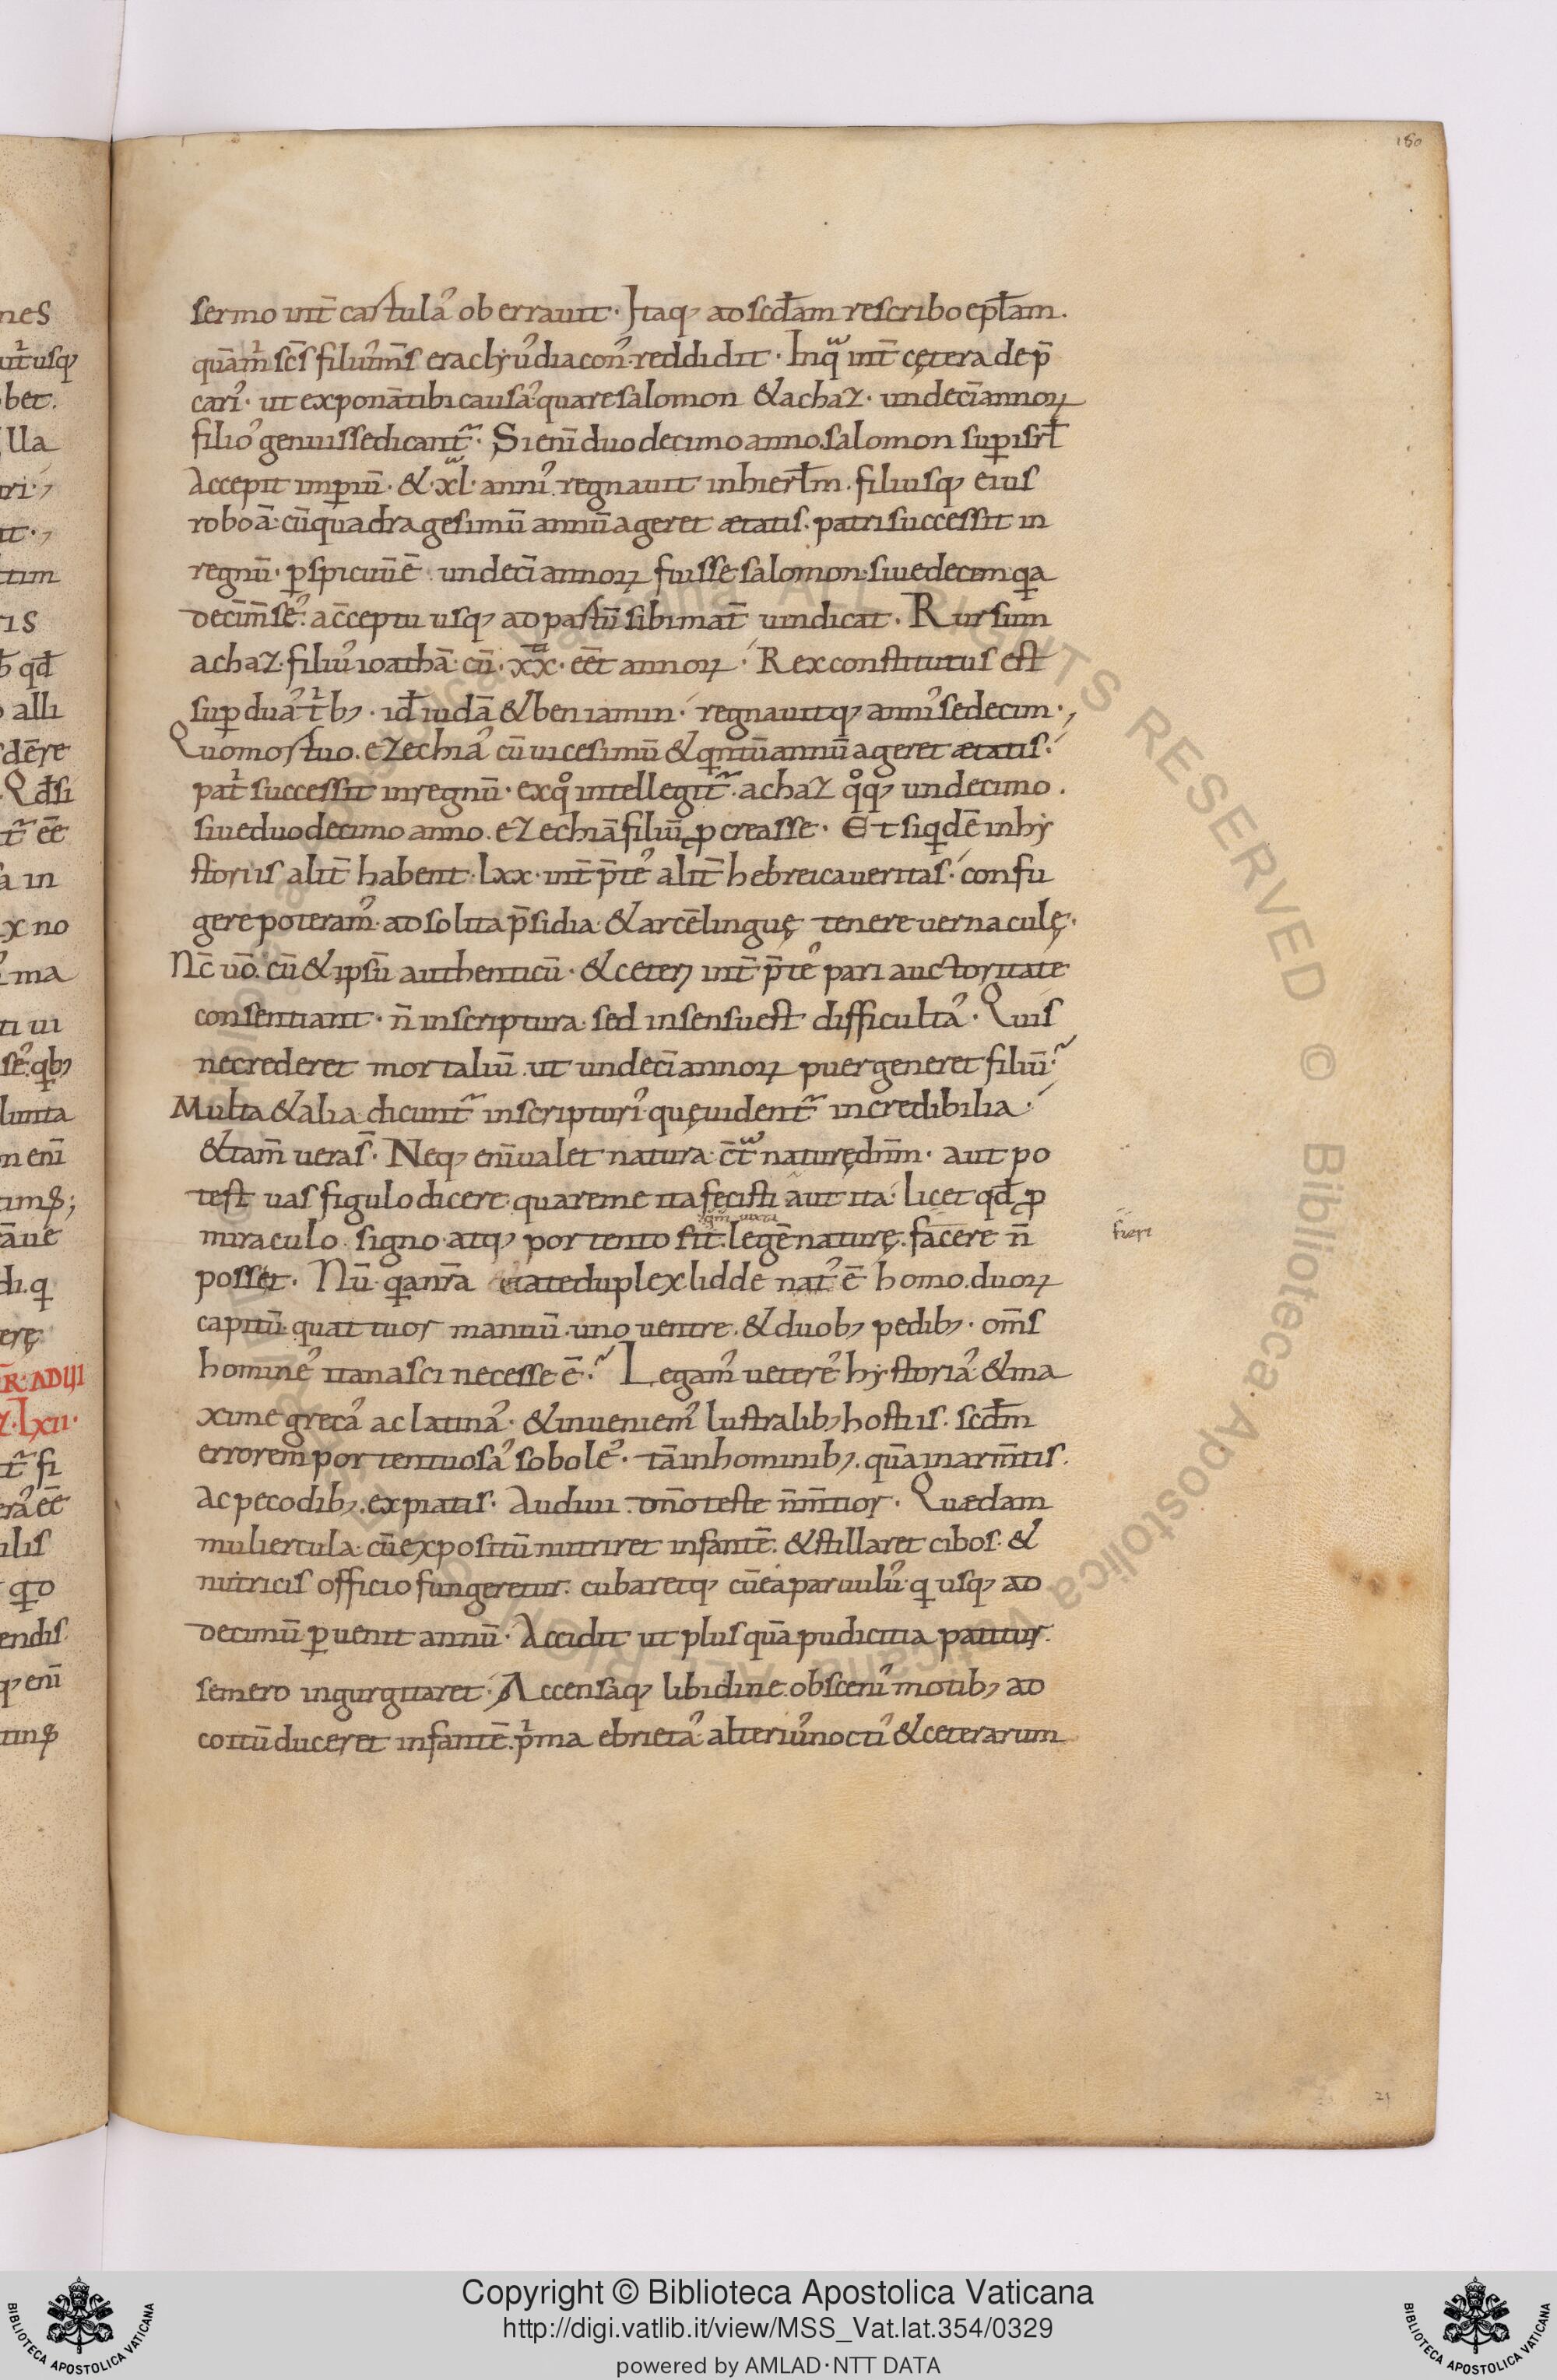 150
sermo int̄ cartulaˀ oberrauit. Itaqˀ ad scđam rescribo epl̄am.
quā m̊ scs̄ filiuˀ ms̄ eracliuˀ diaconˀ reddidit. In qua int̄ cętera dep̄
cariˀ. ut exponā tibi causā quare salomon & achaz. undecī annoꝝ
filioˀ genuisse dicant᷑. Si enī duodecimo anno salomon sup̱ isrł
accepit imp̱iū. & xl annˀ regnauit in hierłm. filiusqˀ eius
roboā cū quadragesimū annū ageret ætatis. patri successit in
regnū. p̱spicuū ē undecī annoꝝ fuisse salomon. siue decem qa
decim̄ mēseˀ acceptu usqˀ ad partū sibi mat̄ uindicat. Rursum
achaz filiuˀ ioathā cū xx eēt annoꝝ. Rex constitutus est
sup̱ duaˀ tˈbꝫ. iđ iudā & beniamin. regnauitqˀ anniˀ sedecim.
Quo mortuo. ezechiaˀ cū uicesimū & qntū annū ageret ætatis.
patˈ successit in regnū. ex qͦ intellegit᷑. achaz qͦqˀ undecimo.
siue duodecimo anno. ezechiā filiū ꝓcreasse. Et siqdē in hy
storiis alit̄ habent lxx. int̄p̄teˀ alit̄ hebreica ueritas. confu
gere poteramˀ ad solita p̄sidia & arcē linguę tenere uernaculę.
Nc̄ uō. cū & ipsū authenticū. & ceteri int̄p̄teˀ pari auctoritate
consentiant. n̄ in scriptura sed in sensu est difficultaˀ. Quis
ne crederet mortaliū. ut undecī annoꝝ puer generet filiū.
Multa & alia dicunt᷑ in scripturiˀ quę uident᷑ incredibilia.
& tam̄ uera s̄. Neqˀ enī ualet natura ct̄ᵃ naturę dnm̄. aut po
test uas figulo dicere quare me ita fecisti aut ita. licet qđ ꝓ
miraculo signo atqˀ portento fit. legē naturę. facere n̄
fieri
posset. Nū qa nr̄a etate duplex lidde natˀ ē homo. duoꝝ
capitū quattuor manuū uno uentre. & duobꝫ pedibꝫ. om̄s
homineˀ ita nasci necesse ē. Legamˀ uetereˀ hystoriaˀ & ma
xime grecaˀ ac latinaˀ. & inueniemˀ lustralibꝫ hostiis. scđm
errorem portentuosaˀ soboleˀ. tā in hominibꝫ. quā in arm̄tis.
ac pecodibꝫ. expiatis. Audiui dn̄o teste n̄ m̄tior. Quædam
muliercula cū expositū nutriret infantē. & stillaret cibos. &
nutricis officio fungeretur. cubaretqˀ cū ea paruuluˀ q usqˀ ad
decimū p̱uenit annū. Accidit ut plus quā pudicitia patitur.
se mero ingurgitaret. Accensaqˀ libidine obsceniˀ motibꝫ ad
coitū duceret infantē. pˈma ebrietaˀ alteriuˀ noctiˀ & ceterarum
21
Copyright © Biblioteca Apostolica Vaticana
http://digi.vatlib.it/view/MSS_Vat.lat.354/0329
powered by AMLAD·NTT DATA